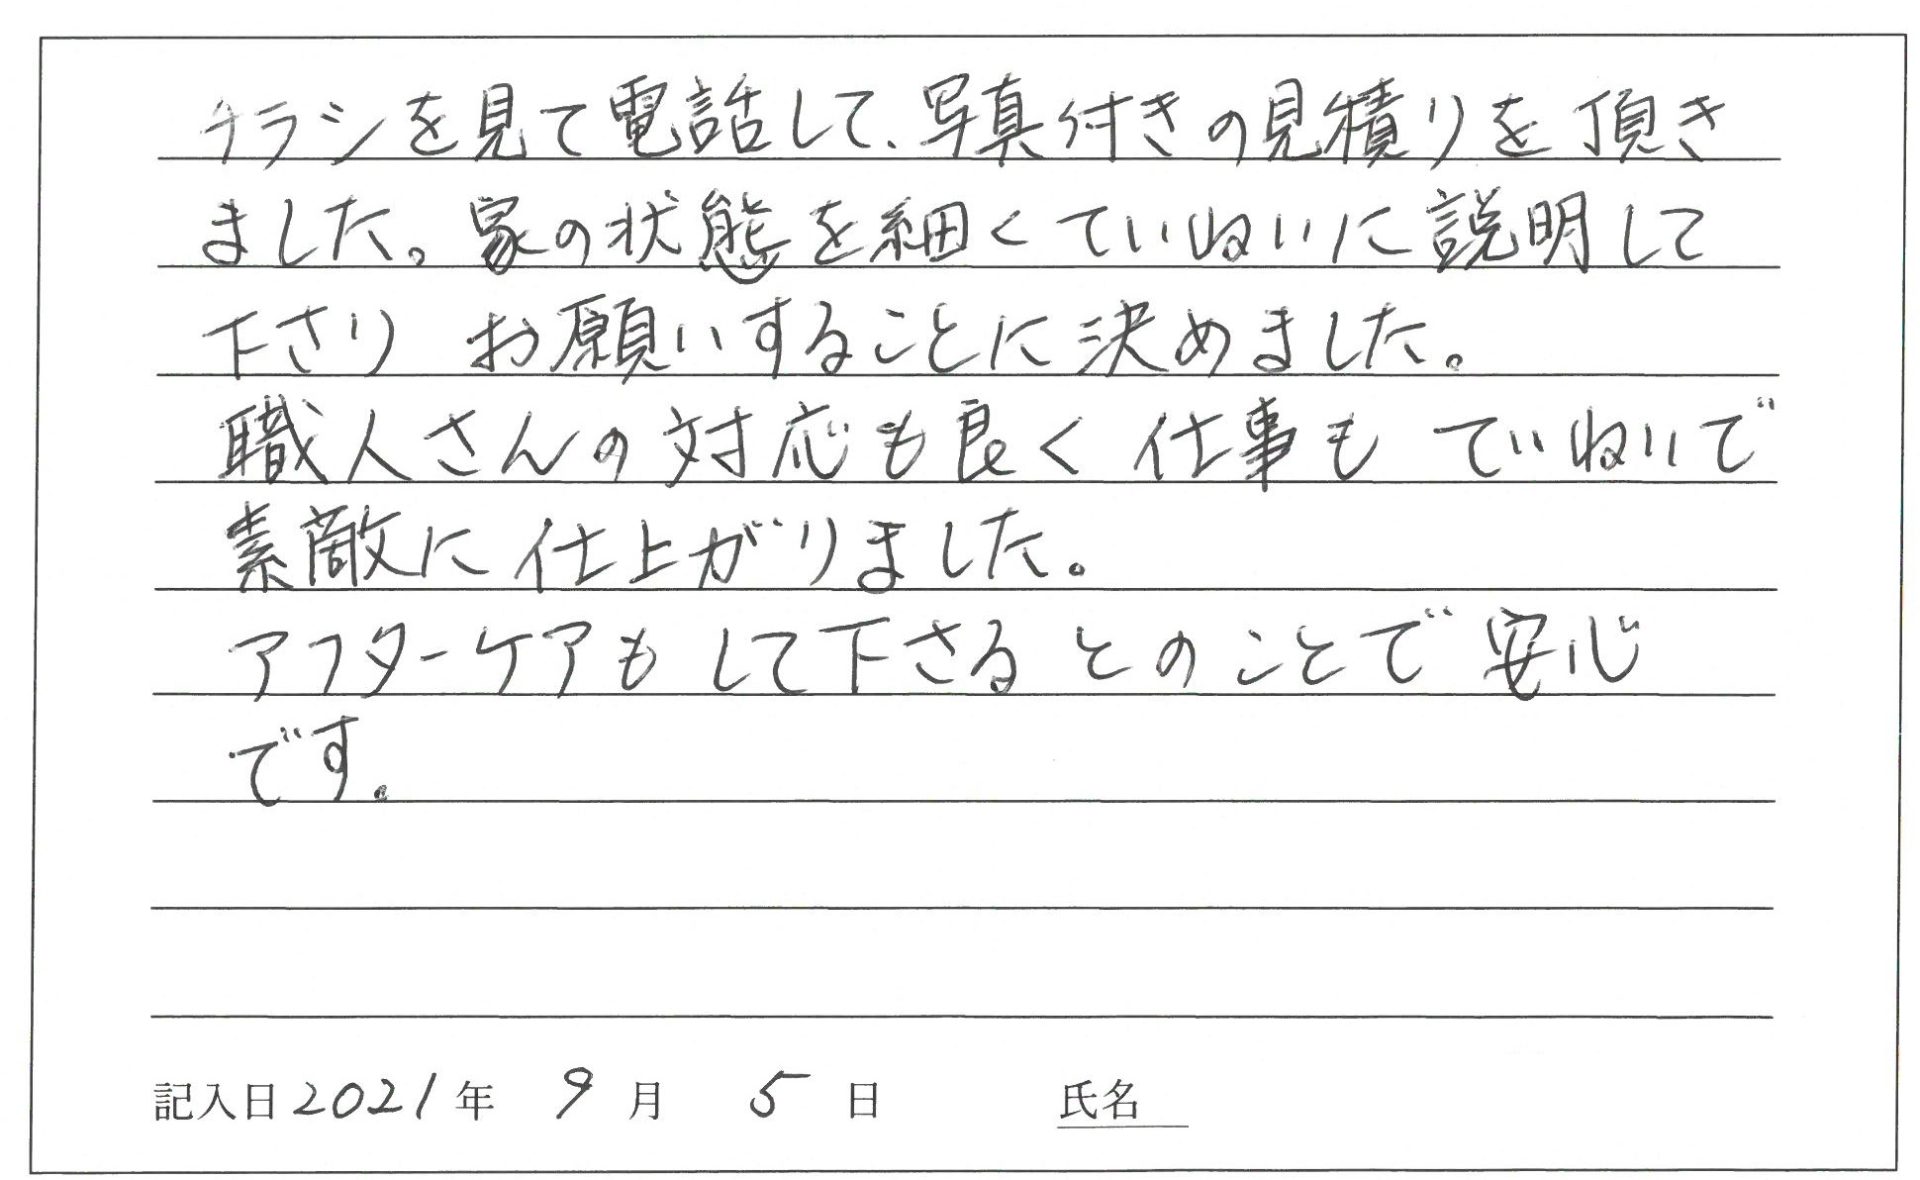 チラシを見て電話して、写真付きの見積りを頂き
ました。家の状態を細くていねいに説明して
下さり お願いすることに決めました。
職人さんの対応も良く仕事も ていねいで
素敵に仕上がりました。
アフターケアもして下さるとのことで安心
です。
記入日2021年 9月 5日 氏名